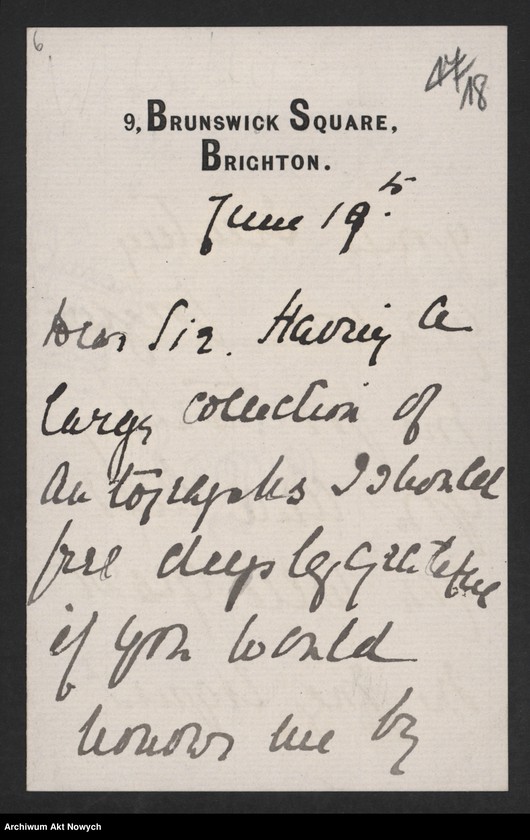 6
47/18
9, BRUNSWICK SQUARE,
BRIGHTON.
June 19.th
Dear Sir. Having a
large collection of
Autographs I should
feel deeply grateful
if you would
honour me by
Archiwum Akt Nowych